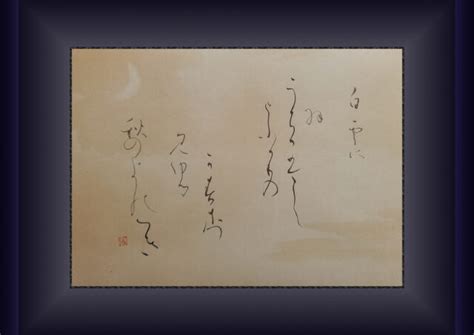 白雲に
羽
うちかはし
とぶかりの
かずさへ
見ゆる
秋のよのつき